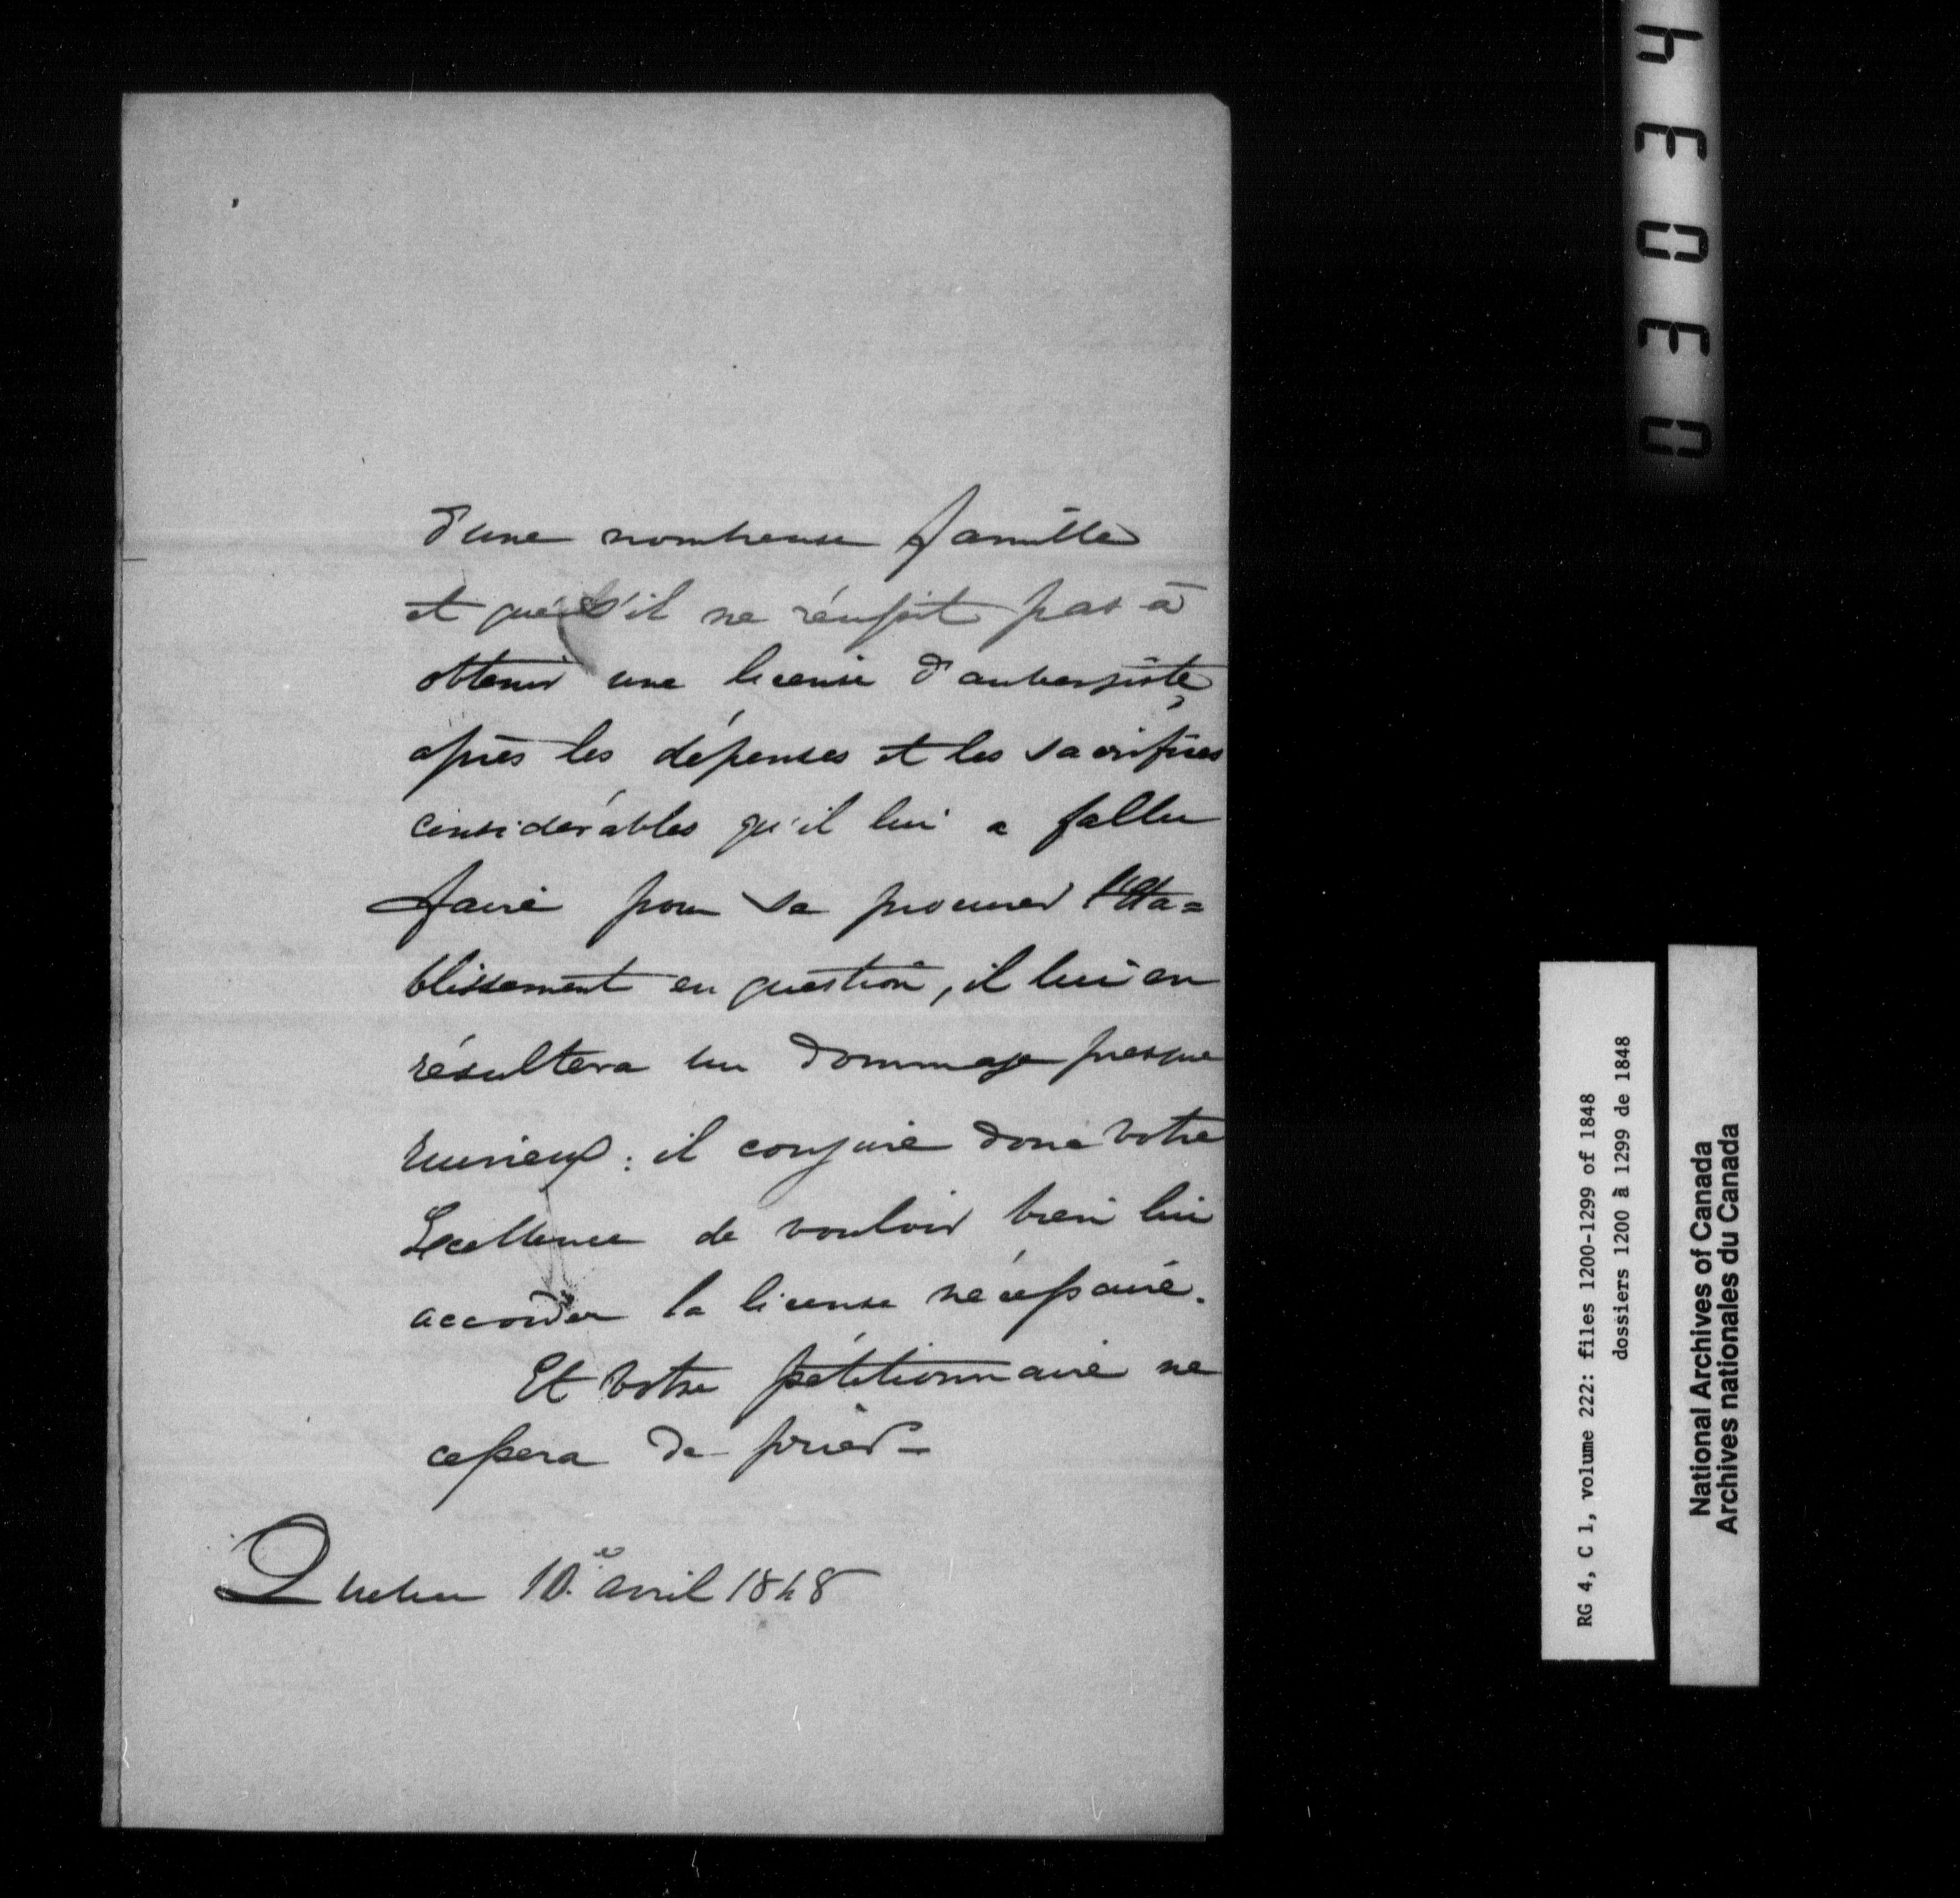 d'une nombreuse famille
et que s'il ne réussit pas à
obtenir une license d'aubergiste,
après les dépenses et les sacrifices
considérables qu'il lui a fallu
faire pour se procurer l'éta=
blissement en question, il lui en
résultera un dommage presque
ruineux : il conjure donc votre
Excellence de vouloir bien lui
accorder la license nécessaire.
Et votre pétitionnaire ne
cessera de prier -
Quebec 10.e avril 1848
43030
RG 4, C 1, volume 222: files 1200-1299 of 1848
dossiers 1200 à 1299 de 1848
National Archives of Canada
Archives nationales du Canada